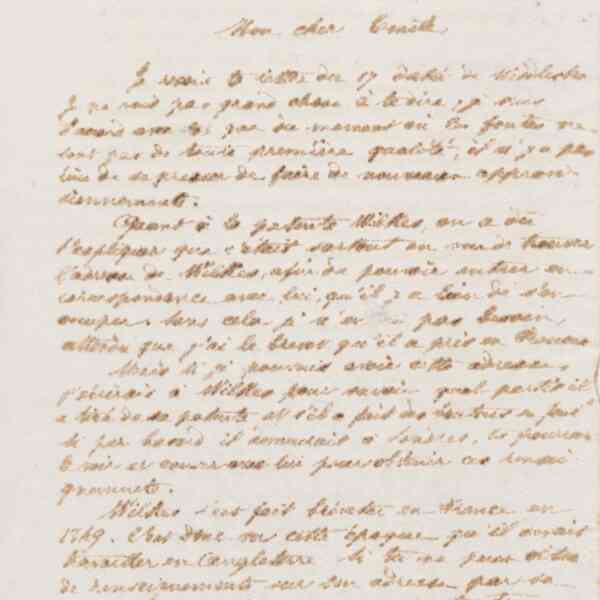 Mon cher Emile
Je reçois ta lettre du 17 datée de
Je ne vois pas grand chose à te dire, je suis
d'accord avec toi que du moment où les fontes ne
sont pas de toute première qualité, il n'y a pas
lieu de se presser de faire de nouveaux approvi-
sionnements.
Quant à la patente Wilkes, on a dû
t'expliquer que c'était surtout en vue de trouver
l'adresse de Wilkes, afin de pouvoir entrer en
correspondance avec lui, qu'il y a lieu de s'en
occuper. Sans cela je n'en pas besoin,
attendu que j'ai le brevet qu'il a pris en France
Mais si je pouvais avoir cette adresse,
j'écrirais à Wilkes pour savoir quel parti il
a tiré de sa patente et s'il a fait des
si par hasard il demeurait à Londres, tu pourrais
le voir et causer avec lui pour obtenir ces rensei-
gnements.
Wilkes s'est fait breveter en France en
1849. C'est donc vers cette époque qu'il aurait
en Angleterre. Si tu ne peux obtenir
de renseignements sur son adresse par sa